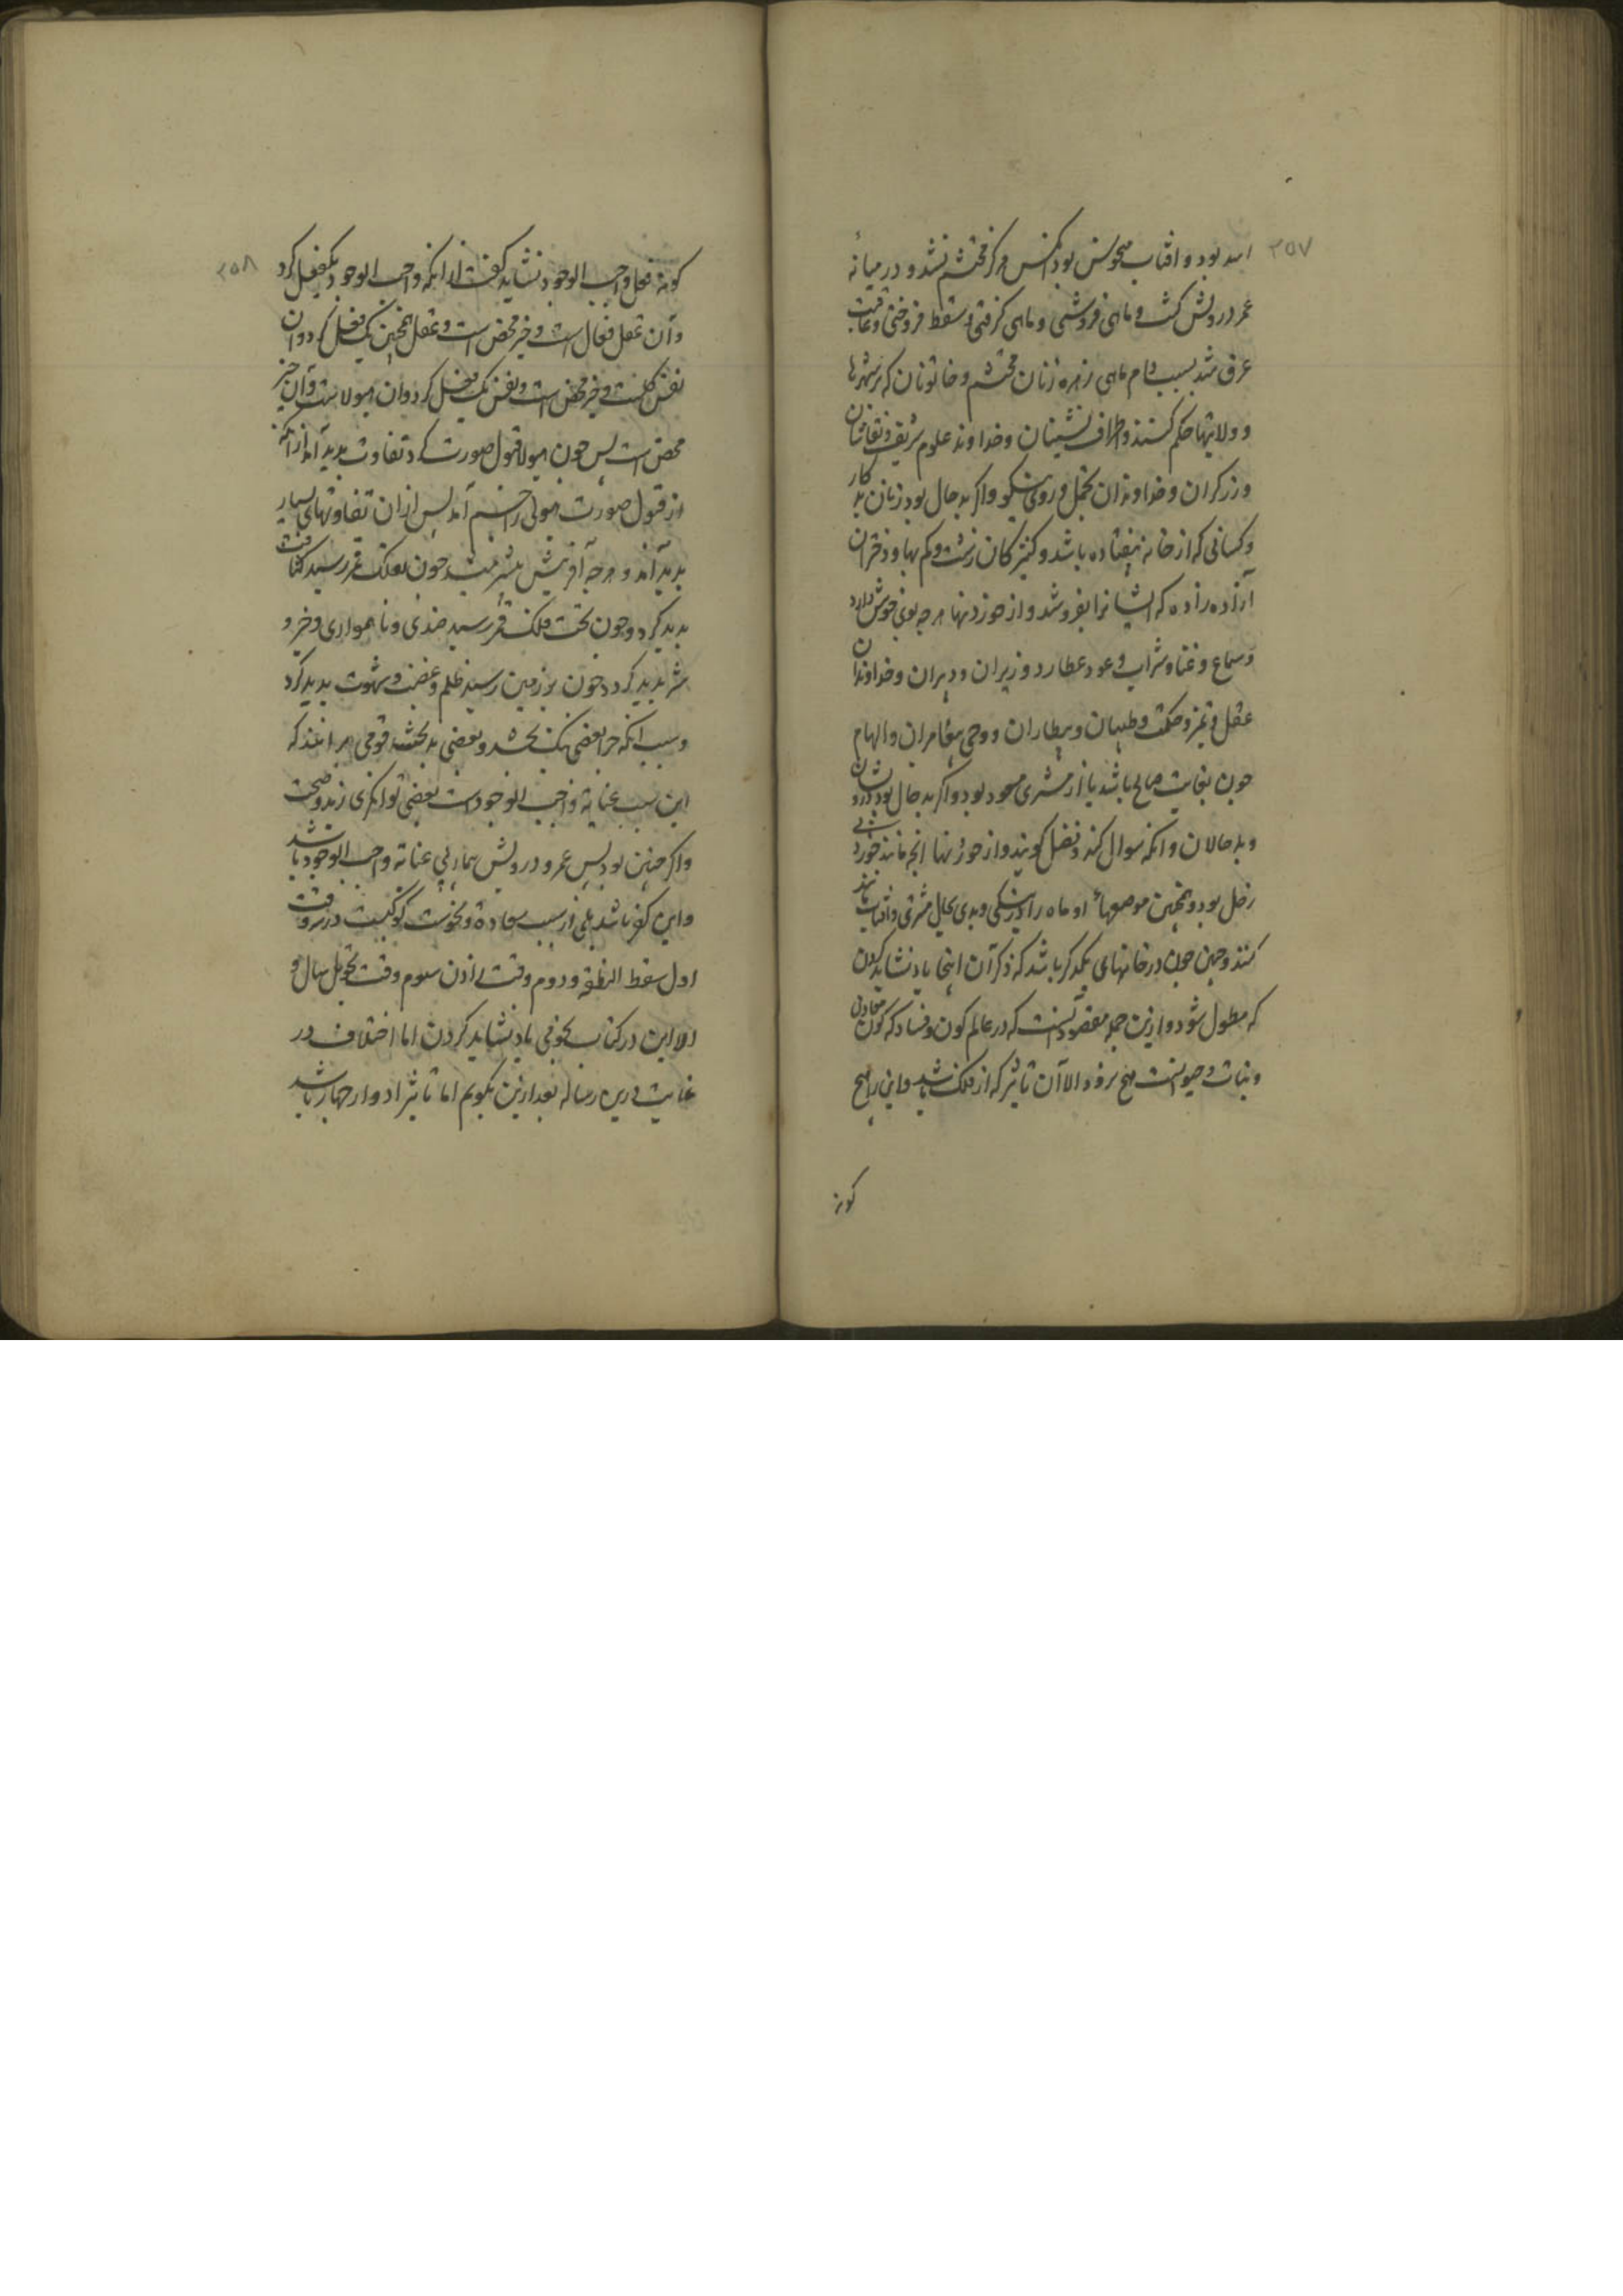 ۲۵۷
اسد بود و افتاب منحوس بود آنکس هرگز محتشم نشد و در میانهٔ
عمر درویش کشت و ماهی فروشی و ماهی کرفتی و سقط فروختی و عاقبت
غرق شد بسبب دام ماهی زهره زنان محتشم و خاتونان که بر شهرها
و ولایتها حکم کنند و اطراف نشینان و خداوند علوم شریف و نقاشان
و زرکران و خداوندان تجمل و روی نیکو و اکر بد حال بود زنان بد کار
و کسانی که از خانه بیفتاده باشد و کنیزکان زشت و کم بها و دختران
آزاده زاده که ایشانرا بفروشد و از خوردنیها هرچه بوی خوش دارد
و سماع و غنا و شراب و عود عطارد وزیران و دبیران و خداوندان
عقل و تمیز و حکمت و طبیبان و بیطاران و وحی پیغامبران و الهام
چون بغایت صالح باشد یا از مشتری مسعود بود و اکر بد حال بود دزدان
و بد حالان و انکه سوال کند و فضل کویند و از خوردنیها انچه مانند خورد
زحل بود و همچنین موضعهاء او ماه را در نیکی و بدی بحال مشتری و افتاب مانند
کنند و چنین چون در خانهای یکدیکر باشد که ذکر آن اینجا یاد نشاید کردن
که مطول شود و ازین جمله مقصود آنست که در عالم کون و فساد که کون معادن
و نبات و حیوانست هیچ نرود الا آن تاثیر که از فلک باشد و این را هیچ
کونه
۲۵۸
کونه فعل واجب الوجود نشاید کفت از انکه واجب الوجود یک فعل کرد
و آن عقل فعال است و خیر محض است و عقل همچنین یک فعل کرد و ان
نفس کلست و خیر محض است و نفس یک فعل کرد و ان هیولاست و آن خیر
محض است پس چون هیولا قبول صورت کرد تفاوت پدید آمد از آنکه
از قبول صورت هیولی را جسم آمد پس از ان تفاوتهای بسیار
پدید آمد و هرچه آفرینش بیشتر میشد چون بفلک قمر رسید کثافت
پدید کرد و چون تحت فلک قمر رسید ضدی و ناهمواری و خیر و
شر پدید کرد و چون بر زمین رسید ظلم و غضب و شهوت پدید کرد
و سبب انکه چرا بعضی نیک بخت شد و بعضی بدبخت شد قومی برانند که
این سبب عنایة واجب الوجودست بعضی توانکری زید و صحت
و اکر چنین بود پس عمرو درویش بیمار بی عنایة واجب الوجود باشد
و این کفر باشد بلی از سبب سعادة و نحوست کوکبست در سه وقت
اول سقط النطفه و دوم وقت زادن سوم وقت تحویل سال و
الا این در کتاب نجومی یاد نشاید کردن اما اختلاف در
غایت درین رساله بعد ازین بکویم اما تاثیر ادوار چهار باشد